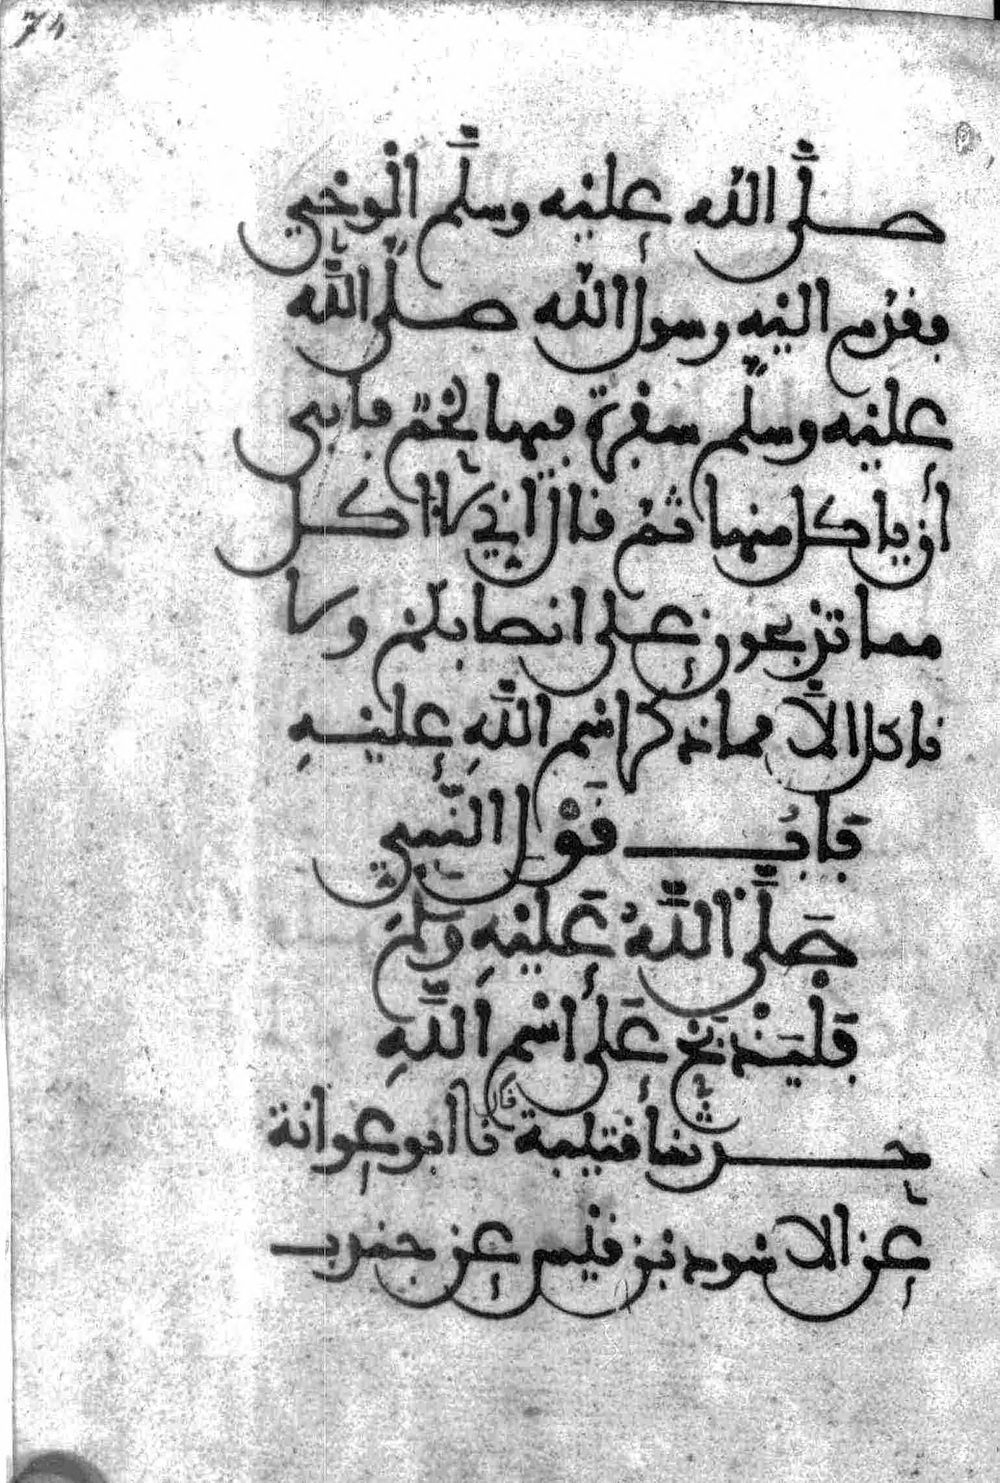 74
صلى الله عليه وسلم الوحي
فقدم اليه رسول الله صلى الله
عليه وسلم سفرة فيها لحم فابى
أن ياكل منها ثم قال اني لا اكل
مما تذبحون على انصابكم ولا
ناكل الا مما ذكر اسم الله عليه
باب قول النبي
صلى الله عليه وسلم
فليذبح على اسم الله
حدثنا قتيبة قال نا ابو عوانة
عن الاسود بن قيس عن جندب